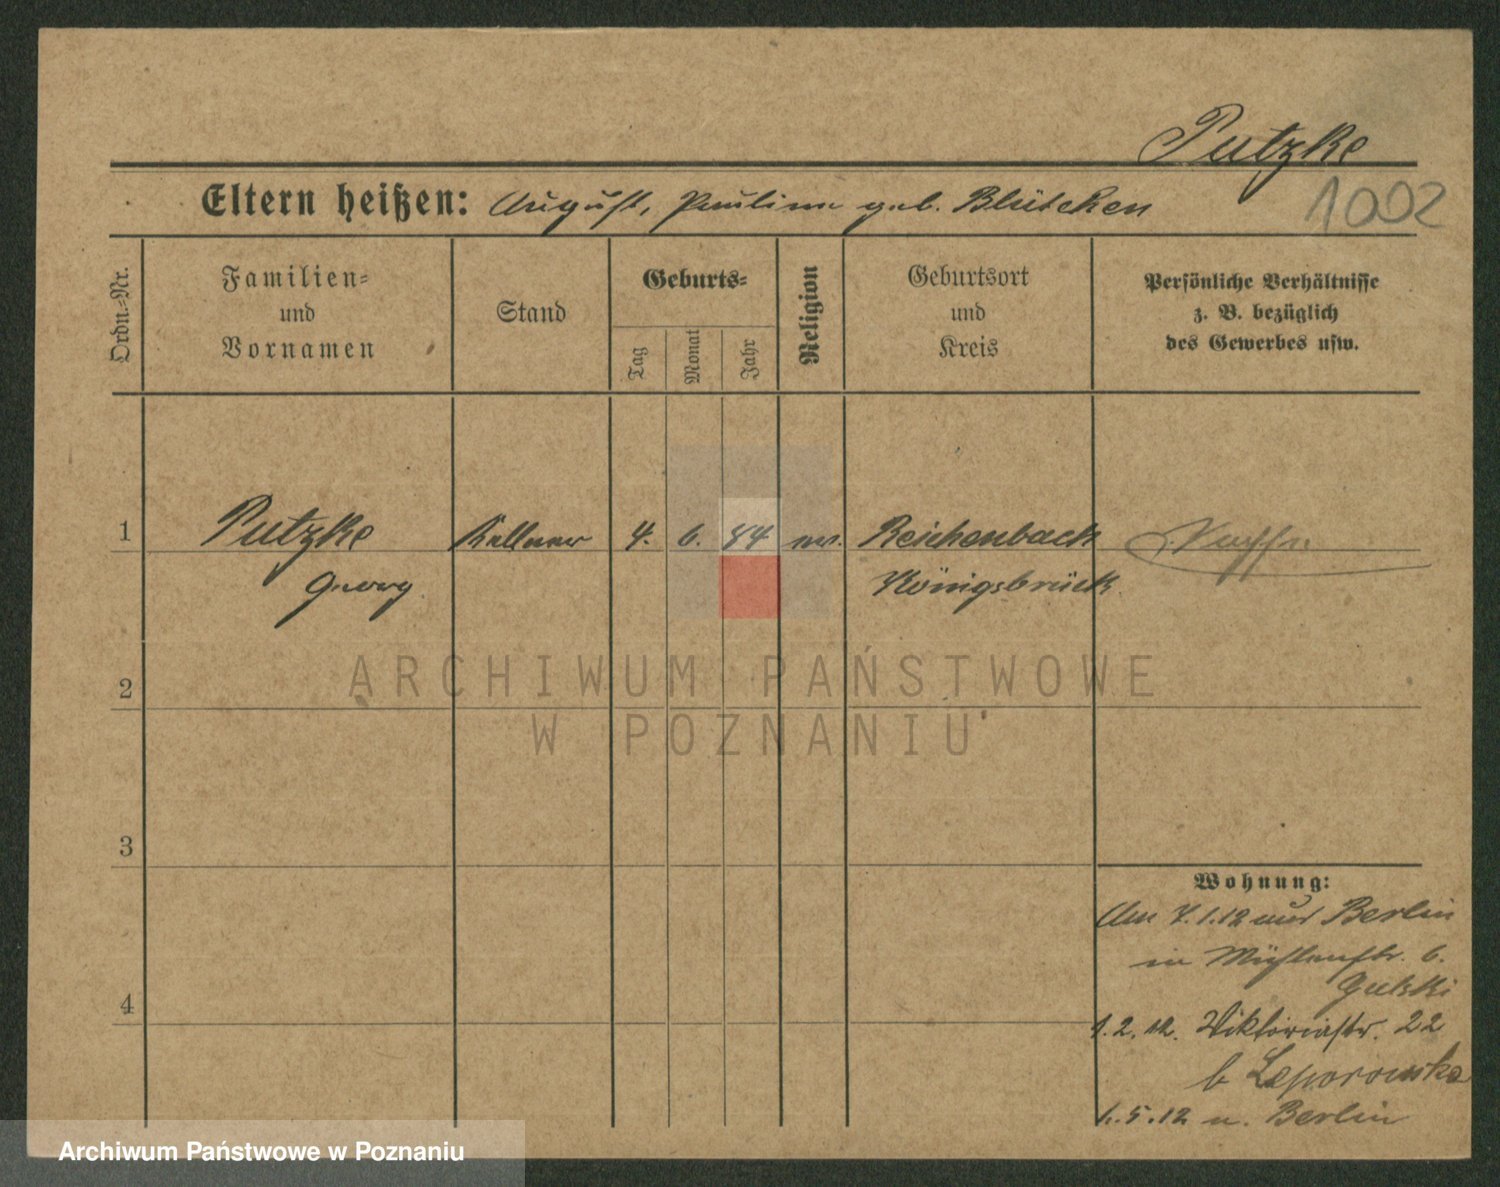 Putzke
1002
Eltern heißen: August, Pauline geb. Blütchen
Ordn.-Nr.
Familien-
und
Vornamen
Stand
Geburts-
Tag
Monat
Jahr
Religion
Geburtsort
und
Kreis
Persönliche Verhältnisse
z. B. bezüglich
des Gewerbes usw.
1 Putzke Kellner 4. 6. 84 ev. Reichenbach
Georg Königsbrück
2
3
4
ARCHIWUM PAŃSTWOWE
W POZNANIU
Wohnung:
Am 7.1.12 aus Berlin
in Mühlenstr. 6.
1.2.12. Viktoriastr. 22
b Leporowska
1.5.12 n. Berlin
Archiwum Państwowe w Poznaniu